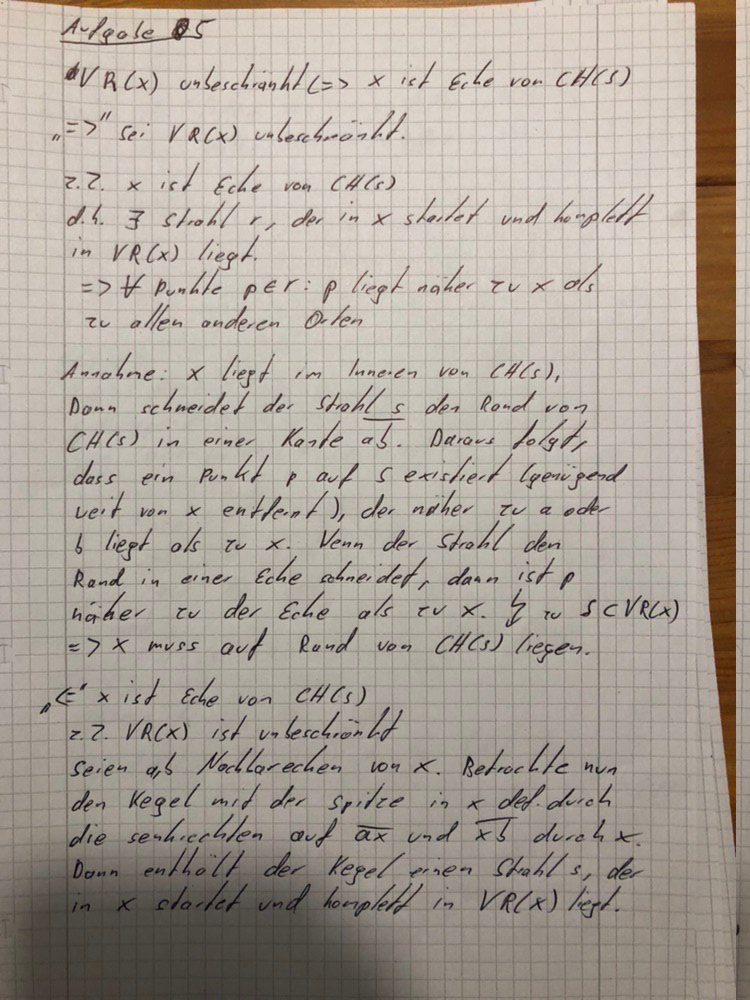 Aufgabe 5
VR(x) unbeschränkt <=> x ist Ecke von CH(S)
„=>" Sei VR(x) unbeschränkt.
z.z. x ist Ecke von CH(S)
d.h. ∃ Strahl r, der in x startet und komplett
in VR(x) liegt.
=> ∀ Punkte p∈r: p liegt näher zu x als
zu allen anderen Orten
Annahme: x liegt im Inneren von CH(S),
Dann schneidet der Strahl s den Rand von
CH(S) in einer Kante a̅b̅. Daraus folgt,
dass ein Punkt p auf s existiert (genügend
weit von x entfernt), der näher zu a oder
b liegt als zu x. Wenn der Strahl den
Rand in einer Ecke schneidet, dann ist p
näher zu der Ecke als zu x. ↯ zu S⊂VR(x)
=> x muss auf Rand von CH(S) liegen.
„<=" x ist Ecke von CH(S)
z.z. VR(x) ist unbeschränkt
seien a,b Nachbarecken von x. Betrachte nun
den Kegel mit der Spitze in x def. durch
die senkrechten auf a̅x̅ und x̅b̅ durch x.
Dann enthält der Kegel einen Strahl s, der
in x startet und komplett in VR(x) liegt.